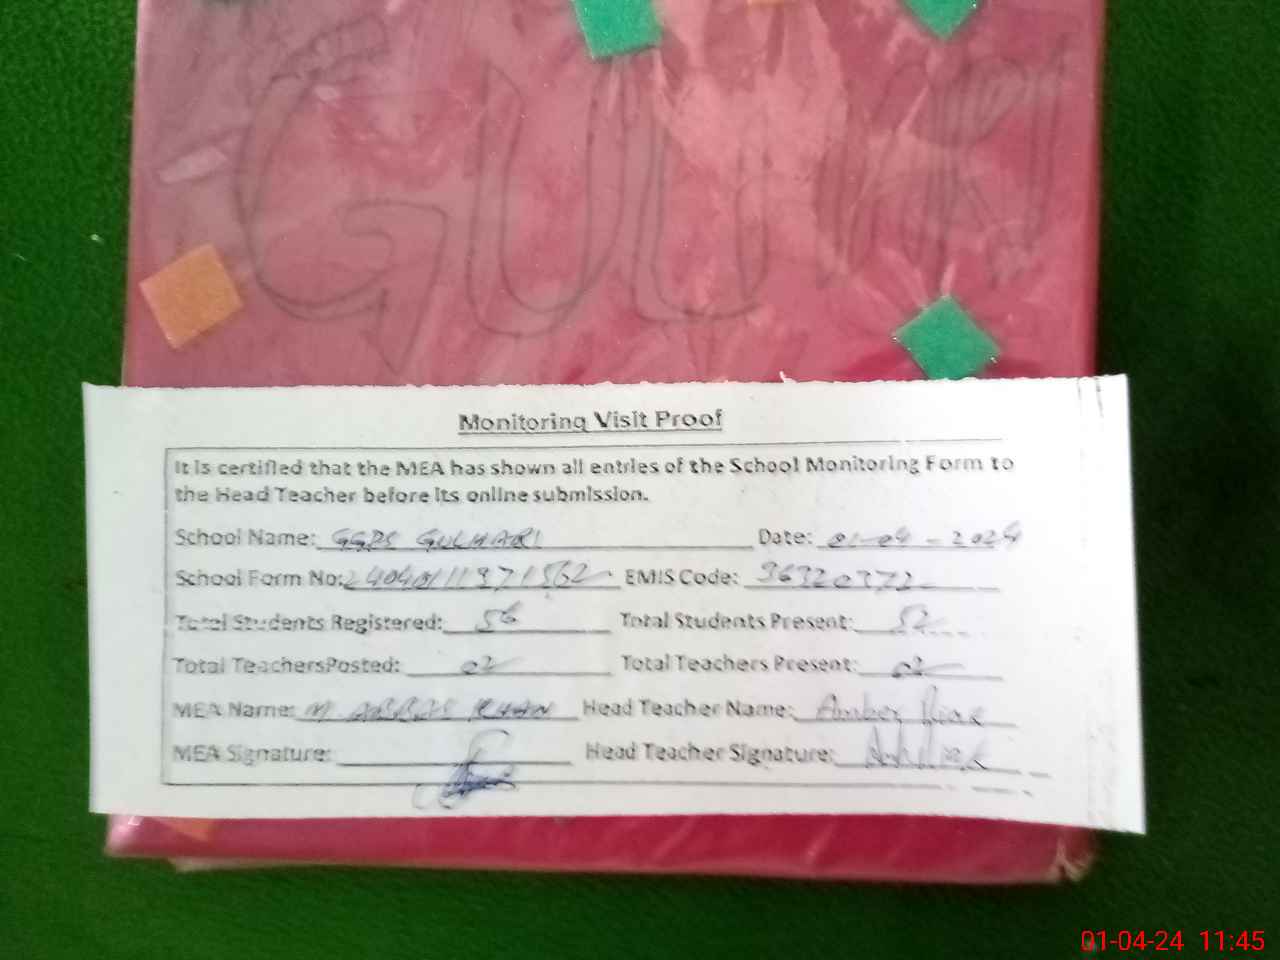 GUL
Monitoring Visit Proof
It is certified that the MEA has shown all entries of the School Monitoring Form to
the Head Teacher before its online submission.
School Name: GGPS GULHARI Date: 01-04-2024
School Form No: 2404011371562 EMIS Code: 36320372
Total Students Registered: 56 Total Students Present: 52
Total TeachersPosted: 02 Total Teachers Present: 02
MEA Name: M. ABBAS KHAN Head Teacher Name: Amber Riaz
MEA Signature: Head Teacher Signature:
01-04-24 11:45